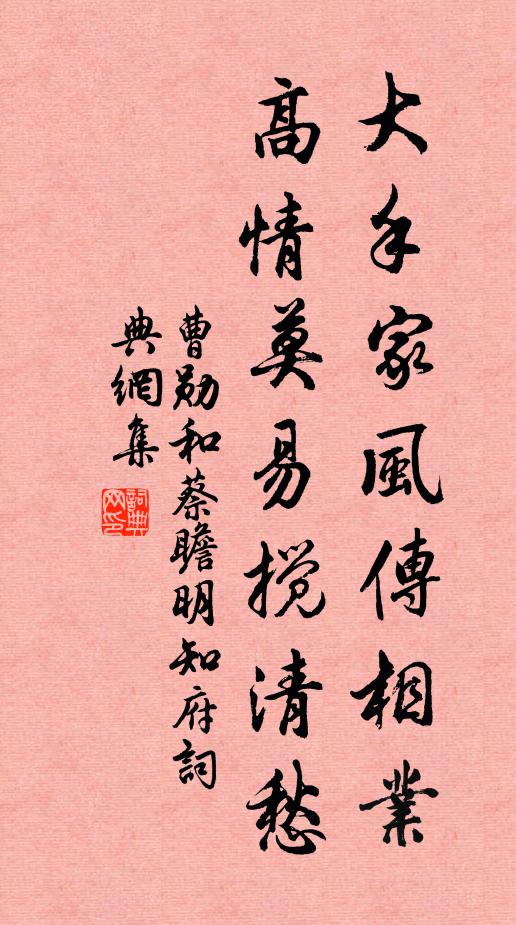 大手家風傳相業
高情莫易攪清愁
曹勛和蔡瞻明知府詞
典網集
詞典網印